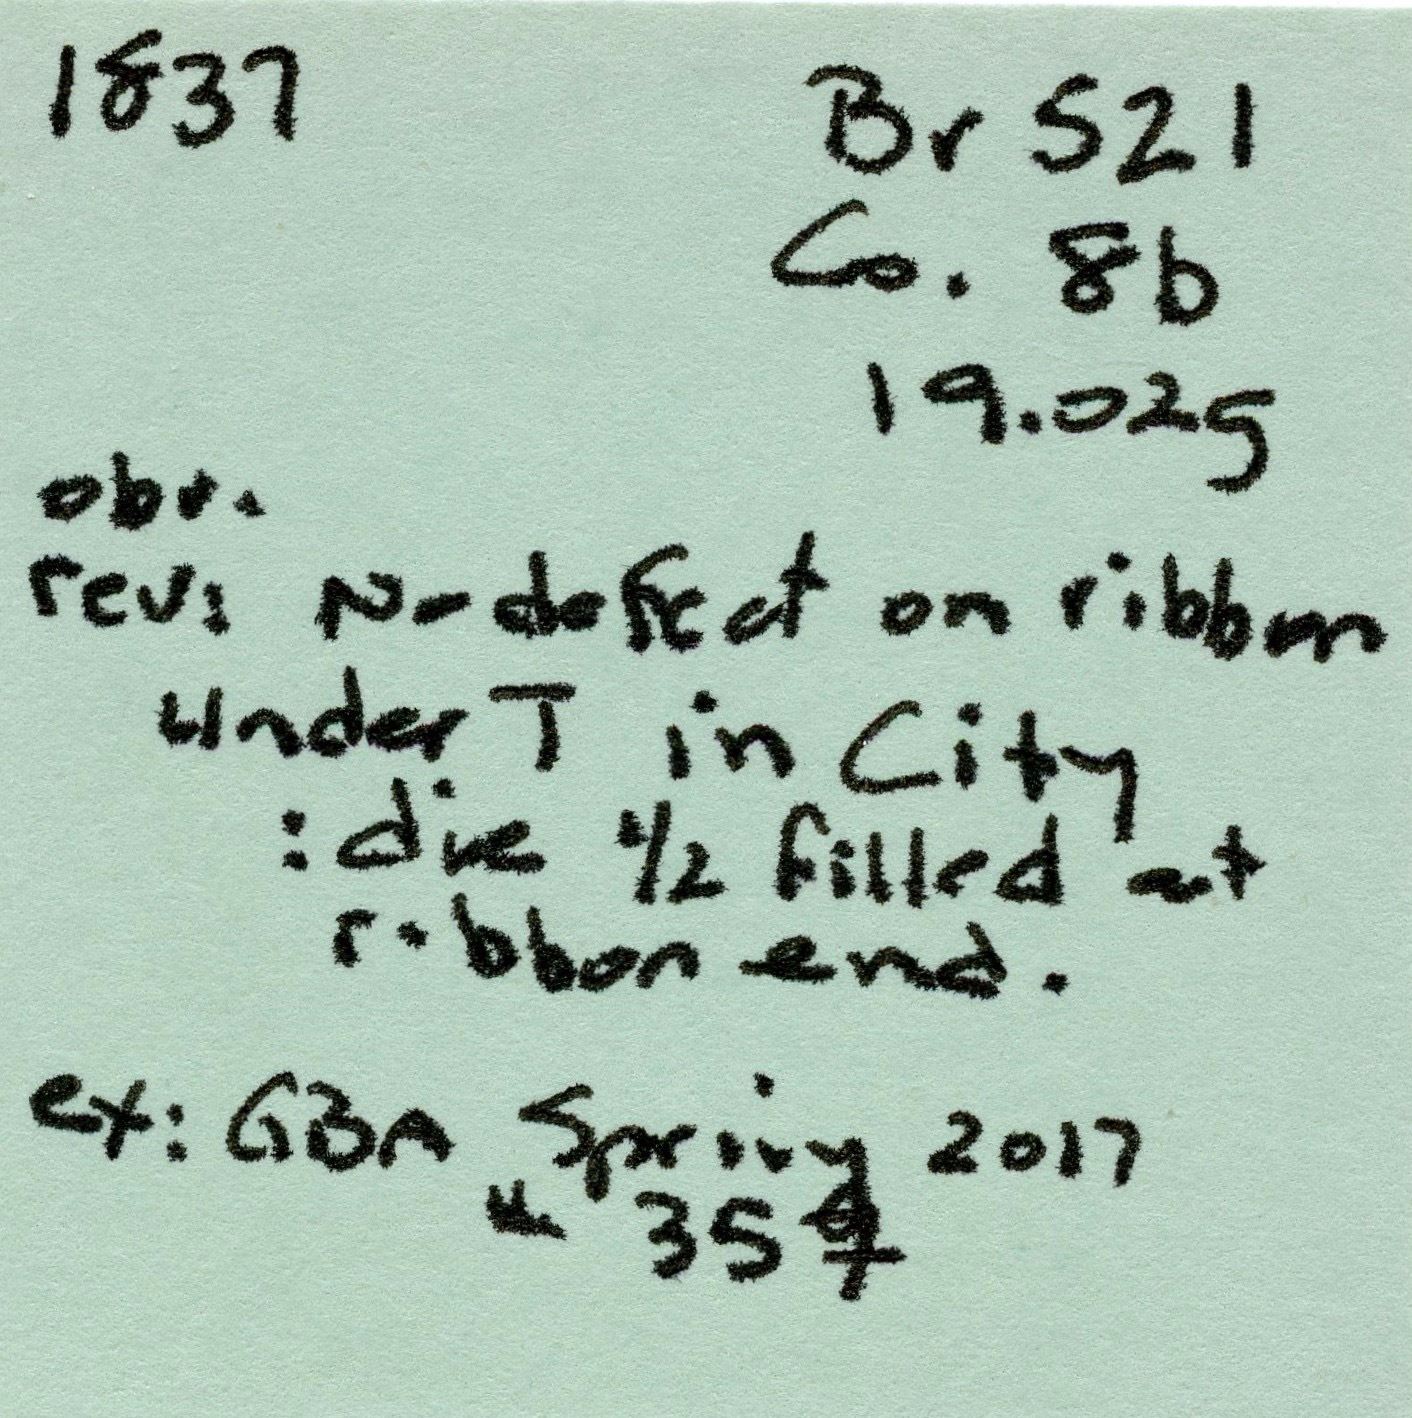 1837
Br 521
Co. 8b
19.02g
obv.
rev: No defect on ribbon
under T in City
: die 1/2 filled at
ribbon end.
ex: GBA Spring 2017
35